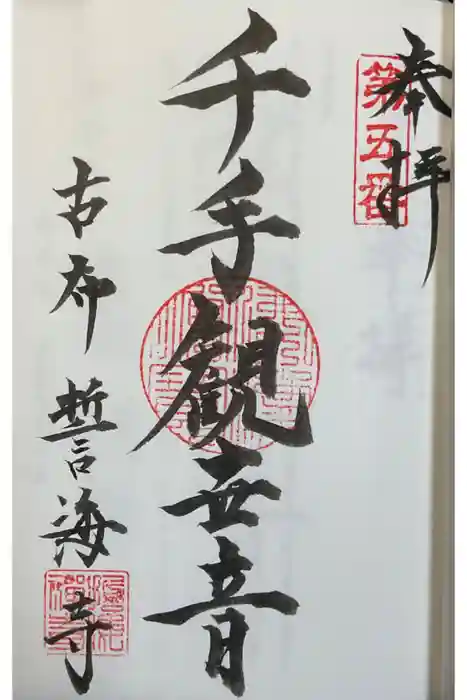 奉拝
第五番
千手観世音
古布 誓海寺